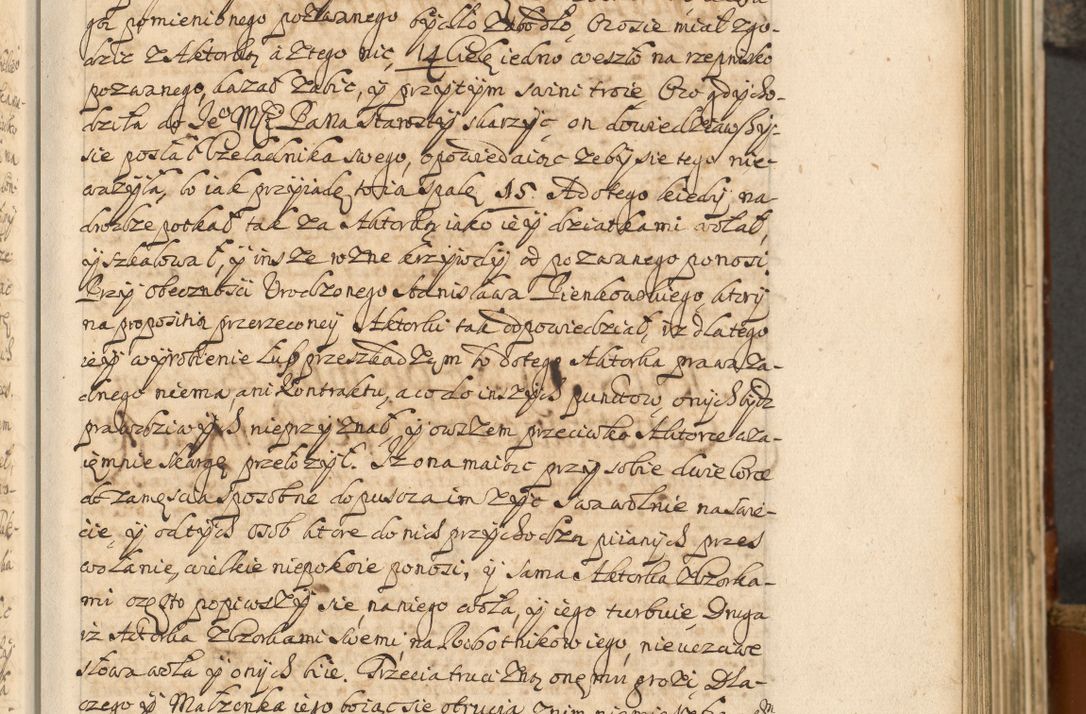 go pomienionego pozwanego bydło zabodło, Oto sie miał zgo-
dzic z Aktorką a z tego nic, 14 Cielę iedno weszło na rzepnisko
pozwanego, kazał zabic, y przytym saini troie Oto gdy cho-
dziła do Jeo Mci Pana Starosty skarzyć on dowiedziawszy
sie posłał Czeladnika swego, opowiedaiąc zeby sie tego nie-
wazyła, bo iak przyiadę to ia spalę 15. A do tego kiedy na
drodze potkał tak za Aktorką iako iey dziatkami wołał,
y szkalował, y insze rozne krzywdy od pozwanego ponosi.
Przy obecznosci Urodzonego Stanisława Pienkowskiego ktory
na propositią przerzeconey Aktorki tak odpowiedział, iz dlatego
iey wyrobienie lub przeszkadzam bo do tego Aktorka prawa za-
dnego niema, ani Kontraktu, a co do inszych punctow, onych bydz
prawdziwych nieprzyznał, y owszem przeciwko Aktorce wza-
iemnie skargę przełozył. Iz ona maiąc przy sobie dwie corce
do zamęscia sposobne dopuscza im zyc swawolnie na swie-
cie, y od tych osob ktore do nich przychodzą piianych przes
wołanie, wielkie niepokoie ponosi, y sama Aktorka z corka-
mi często popiwszy sie na niego woła, y iego turbuie Druga
iz Aktorka z corkami swemi, na Robotnikow iego, nieuczciwe
słowa woła y onych bie. Trzecia trucizną onemu grozi, Dla-
czego y Małzonka iego boiąc sie otrucia z nim niemieszka